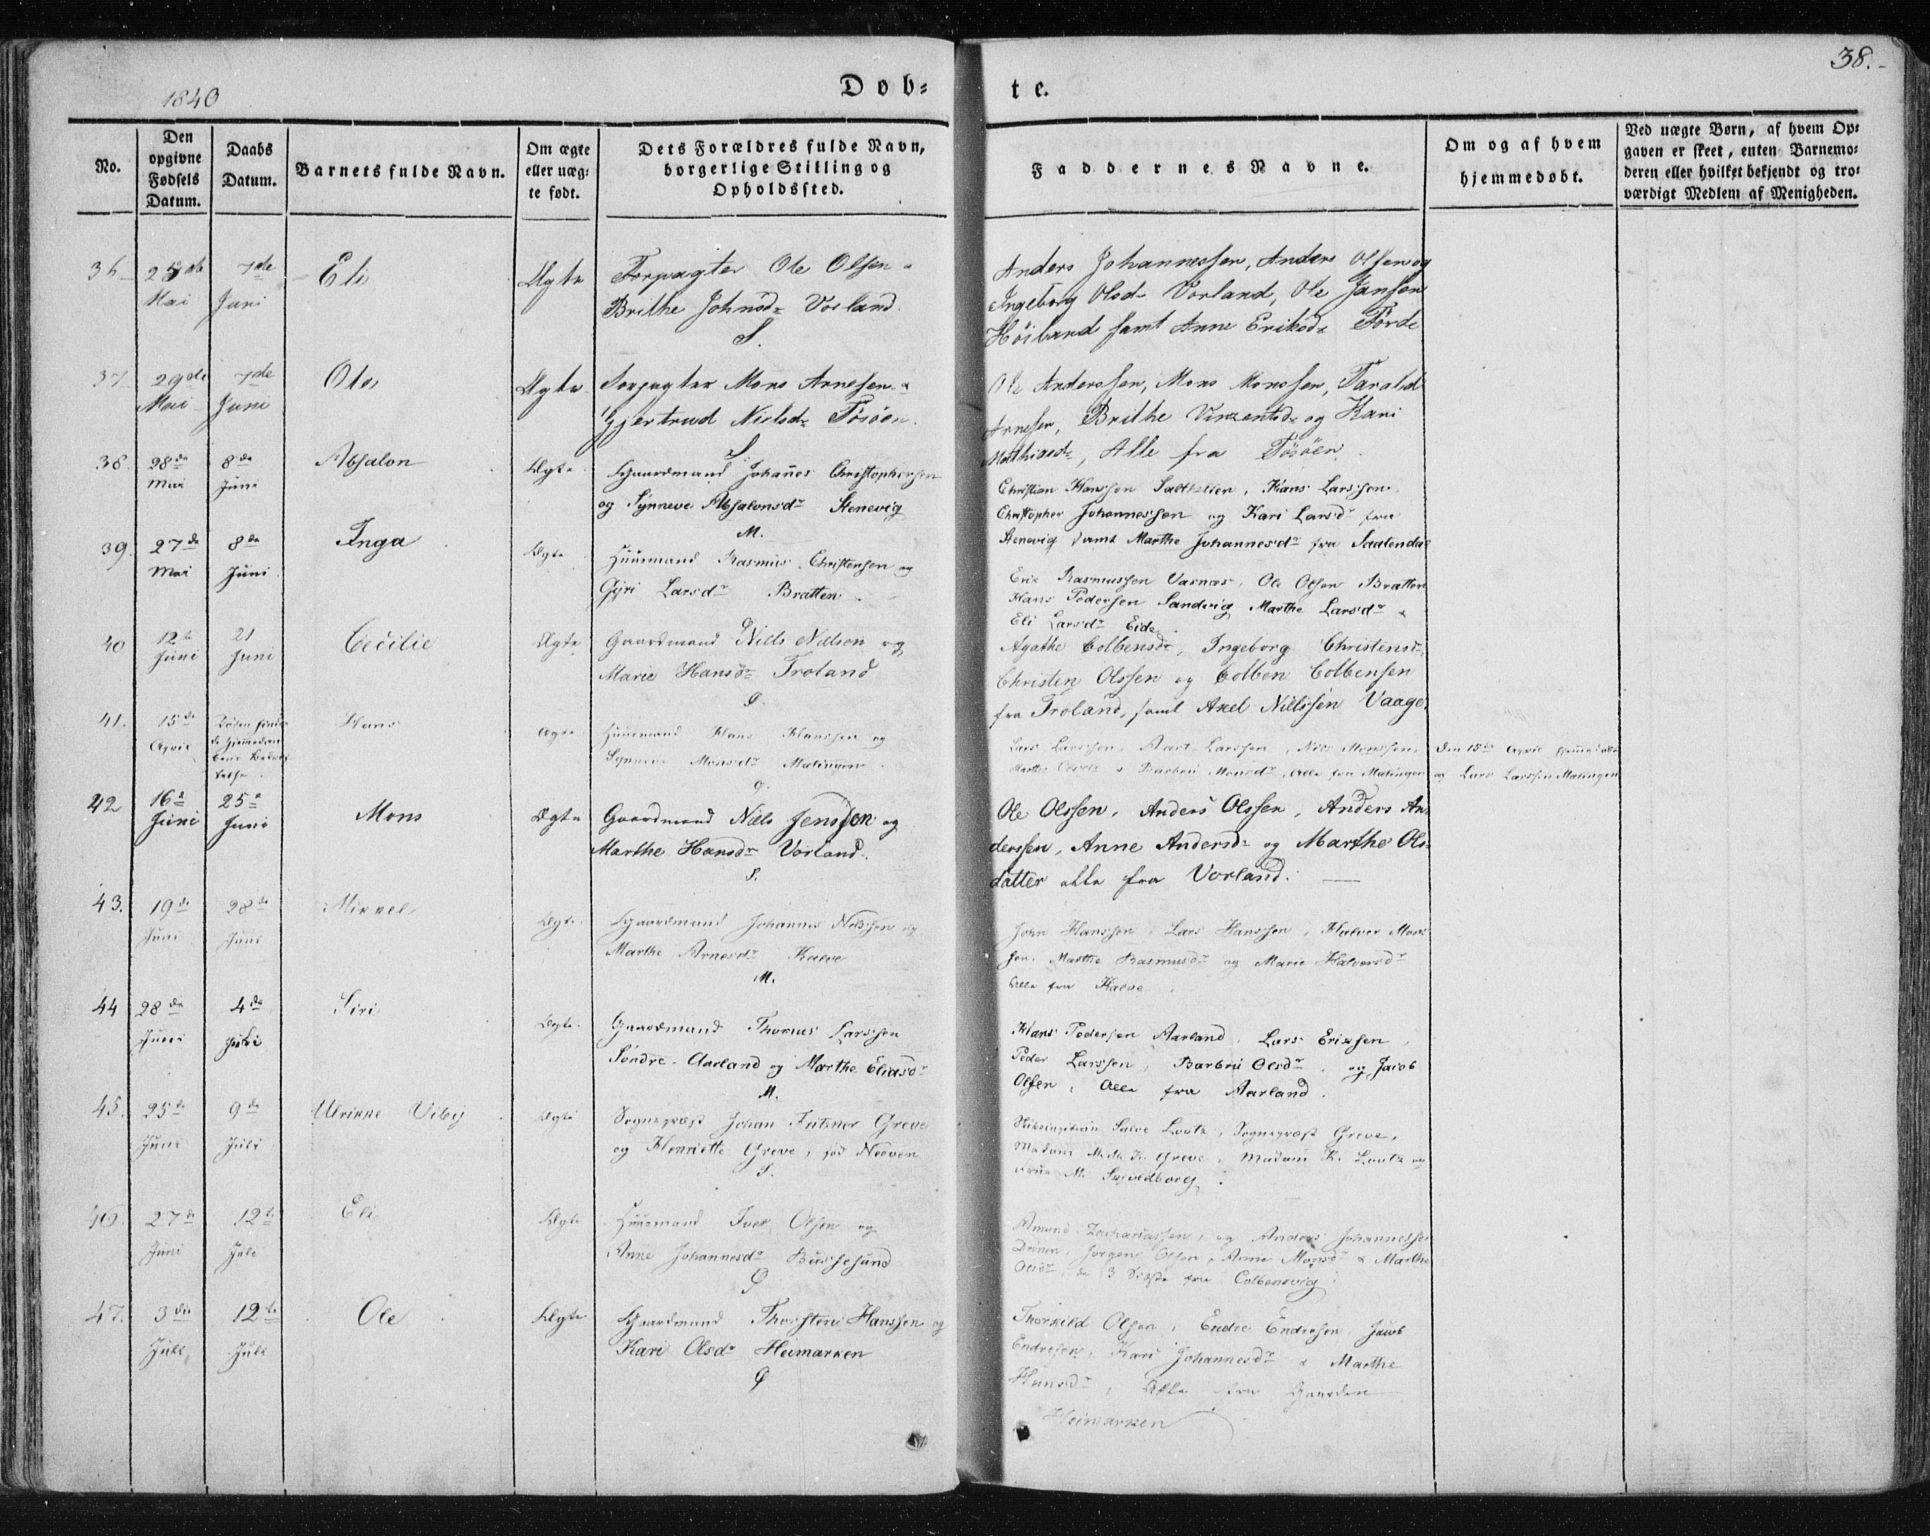 1840
Døb-
te.
38.
No.
Den
opgivne
Fødsels
Datum.
Daabs
Datum.
Barnets fulde Navn.
Om ægte
eller uæg-
te født.
Dets Forældres fulde Navn,
borgerlige Stilling og
Opholdssted.
Faddernes Navne.
Om og af hvem
hjemmedøbt.
Ved uægte Børn, af hvem Op-
gaven er skeet, enten Barnemo-
deren eller hvilket bekjendt og tro-
værdigt Medlem af Menigheden.
36 25de 7de Eli Ægte Forpagter Ole Olsen
Mai Juni Brithe Johnsd. Vorland.
S.
Anders Johannessen, Anders Olsen og
Ingeborg Olsd. Vorland, Ole Jansen
Høiland samt Anne Eriksd. Førde
37 29de 7de Ole Ægte Forpagter Mons Arnesen
Mai Juni Gjertrud Nielsd. Føiöen.
S
Ole Anderssen, Mons Monssen, Tarald
Arnesen, Brithe Vinzentsd. og Kari
Matthiasd., Alle fra
38. 28de 8de Absalon Ægte Gaardmand Johannes Christophersen
Mai Juni og Synneve Absalonsdr Stenevig
M.
Christian Hanssen, Hans Larssen
Christopher Johannessen og Kari Larsdr fra
Stenevig samt Marthe Johannesdr fra
39. 27de 8de Inga Ægte Huusmand Rasmus Christensen og
Mai Juni Gyri Larsdr Bratten
Erik Rasmussen, Ole Olsen Bratten
Hans Pedersen Sandvig Marthe Larsdr
Eli Larsdr Eide.
40 12te 21 Cecilie Ægte Gaardmand Niels Nielsen og
Juni Juni Marie Hansdr Troland
Agathe Colbensdr, Ingeborg Christensd.
Christen Olssen og Colben Colbensen
fra Troland, samt Axel Nielssen Vaage.
41. 15de Hans Ægte Huusmand Hans Hanssen og
April Synneve Monsdr Matingen
Lars Larssen, Larssen, Niels Monssen,
Marthe & Barbru Monsdr, Alle fra Matingen
Den 18de April hjemmedøbt
og Lars Larssen Matingen
42 16d 25e Mons Ægte Gaardmand Niels Jenssen og
Juni Juni Marthe Hansdr Vorland.
S.
Ole Olssen, Anders Olssen, Anders An-
derssen, Anne Andersd. og Marthe Ols-
datter alle fra Vorland.
43. 19de 28de Mikkel Ægte Gaardmand Johannes Nielssen og
Juni Juni Marthe Arnesdr Kalve
M.
John Hanssen, Lars Hanssen, Halver Mons-
sen. Marthe Rasmusdr og Marie Halversdr
Alle fra Kalve
44 28de 4de Siri Ægte Gaardmand Thomas Larssen
Juni Juli Söndre Aarland og Marthe Eliasdr
M.
Hans Pedersen Aarland, Lars Erixsen,
Peder Larssen, Barbru Olsdr og Jacob
Olsen, Alle fra Aarland.
45. 25de 9de Ulrikke Viby Ægte Sognepræst Johan Greve
Juni Juli og Henriette Greve, fød
S.
Salve Lootz, Sognepræst Greve,
Madam Greve, Madam K. Lootz og
46. 27de 12te Eli Ægte Huusmand Iver Olsen og
Juni Juli Anne Johannesdr Bussesund
Amund Zachariassen, og Anders Johannessen
Jørgen Olsen, Anne Monsdr & Marthe
Olsdr, de 3 Sidste fra Colbensvig
47. 3die 12te Ole Ægte Gaardmand Thorsten Hanssen og
Juli Juli Kari Olsdr Heimarken
Thorkild Olsen, Endre Endresen, Jacob
Endresen, Kari Johannesdr & Marthe
Hansdr, Alle fra Gaarden
Heimarken